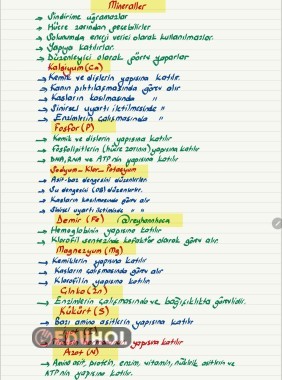 Mineraller
→ Sindirime uğramazlar
→ Hücre zarından geçebilirler
→ Solunumda enerji verici olarak kullanılmazlar.
→ Yapıya katılırlar.
→ Düzenleyici olarak görev yaparlar
Kalsiyum (Ca)
→ Kemik ve dişlerin yapısına katılır.
→ Kanın pıhtılaşmasında görev alır
→ Kasların kasılmasında "
→ Sinirsel uyartı iletilmesinde "
→ Enzimlerin çalışmasında "
Fosfor (P)
→ Kemik ve dişlerin yapısına katılır
→ Fosfolipitlerin (hücre zarının) yapısına katılır
→ DNA, RNA ve ATP'nin yapısına katılır
Sodyum-Klor-Potasyum
→ Asit-baz dengesini düzenlerler
→ Su dengesini (OB) düzenlerler.
→ Kasların kasılmasında görev alır
→ Sinirsel uyartı iletiminde "
Demir (Fe) @reyhanhoca
→ Hemoglobinin yapısına katılır
→ Klorofil sentezinde kofaktör olarak görev alır.
Magnezyum (Mg)
→ Kemiklerin yapısına katılır
→ Kasların çalışmasında görev alır
→ Klorofilin yapısına katılır
Çinko (Zn)
→ Enzimlerin çalışmasında ve bağışıklıkta görevlidir.
Kükürt (S)
→ Bazı amino asitlerin yapısına katılır
yapısına katılır
Azot (N)
→ Amino asit, protein, enzim, vitamin, nükleik asitlerin ve
ATP'nin yapısına katılır.